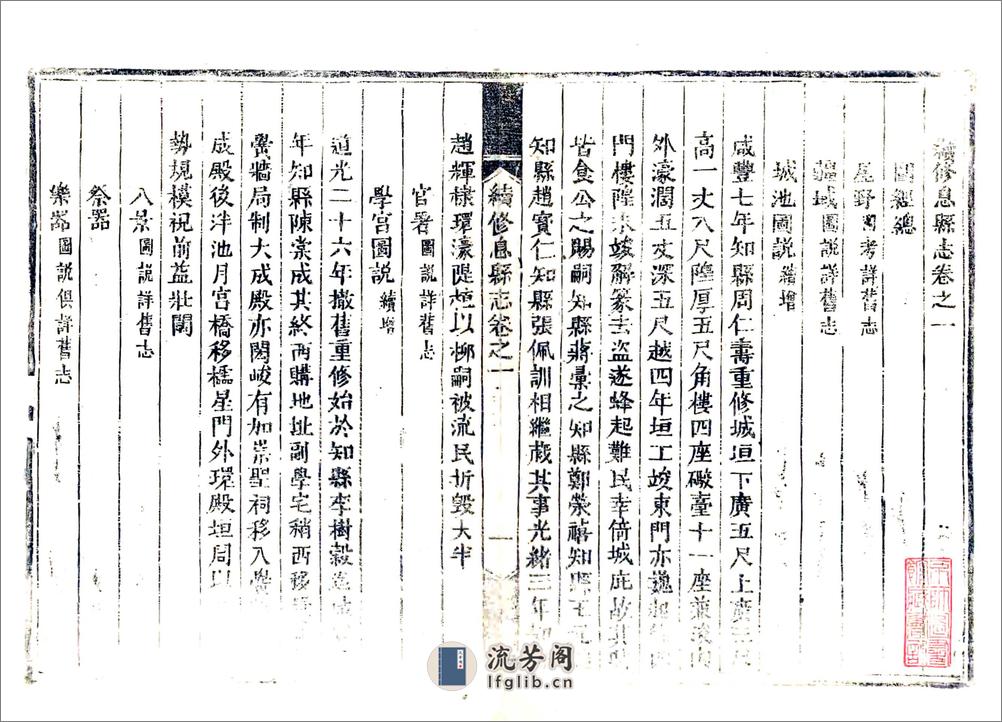 續修息縣志卷之一
圖經總
星野圖考詳舊志
疆域圖說詳舊志
城池圖說續增
咸豐七年知縣周仁壽重修城垣下廣五尺上廣三尺
高一丈八尺隍厚五尺角樓四座礮臺十一座並浚內
外濠濶五丈深五尺越四年垣工竣東門亦巍
門樓隍未竣解篆去盜遂蜂起難民幸倚城庇故
皆食公之賜嗣知縣蔣彙之知縣鄭榮禧知縣王
知縣趙實仁知縣張佩訓相繼蕆其事光緒三年知
續修息縣志卷之一
一
趙輝棣環濠隄植以柳嗣被流民折毀大半
官署圖說詳舊志
學宮圖說續增
道光二十六年撤舊重修始於知縣李樹穀
年知縣陳棠成其終兩購地址副學宅稍西移
黌牆局制大成殿亦閎峻有加崇聖祠移入黌
成殿後泮池月宮橋移櫺星門外環殿垣周以
勢規模視前益壯闊
八景圖說詳舊志
祭器
樂器圖說俱詳舊志
流芳阁
lfglib.cn